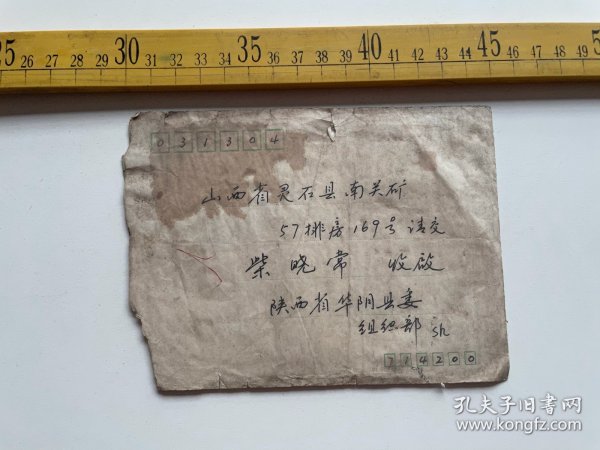 25 26 27 28 29 30 31 32 33 34 35 36 37 38 39 40 41 42 43 44 45 46 47 48 49
031304
山西省灵石县南关矿
57排房169号请交
柴晓常 收启
陕西省华阴县委
组织部 sh
714200
孔夫子旧书网
www.kongfz.com